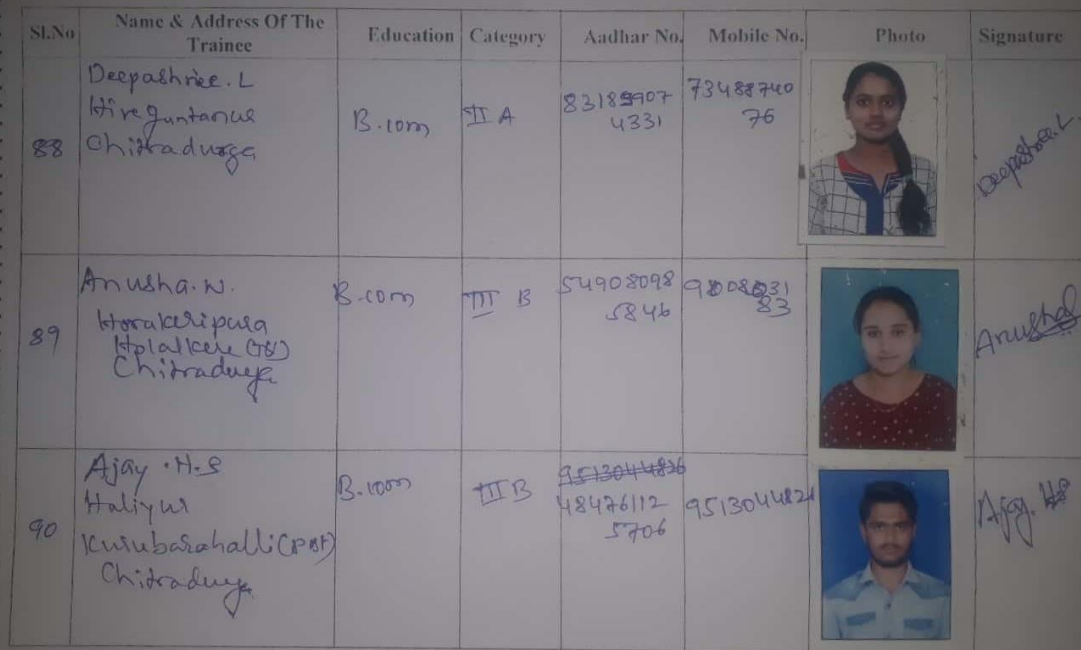 Sl.No
Name & Address Of The
Trainee
Education
Category
Aadhar No.
Mobile No.
Photo
Signature
88
Deepashree.L
Chitradurga
B.com
II A
4331
76
Deepashree.L.
89
Anusha.N.
Horakeripura
Holalkere (TQ)
Chitradurga
B.com
III B
54908098
5846
83
Anusha
90
Ajay .H.S
Kurubarahalli (post)
Chitradurga
B.com
III B
48476112
5706
Ajay. HS